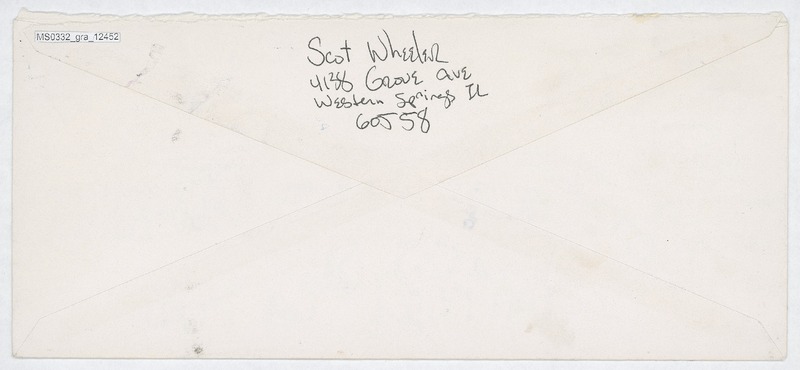 MS0332_gra_12452
Scot Wheeler
4138 Grove ave
Western Springs IL
60558